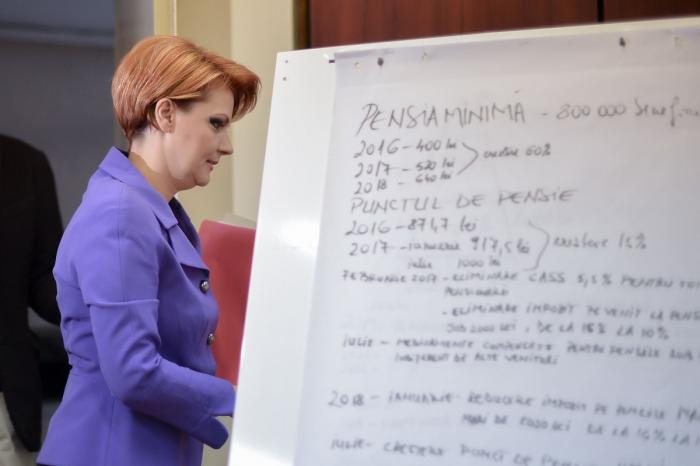 PENSIA MINIMĂ - 800 000 benefi
2016 - 400 lei
2017 - 520 lei
creștere 60%
2018 - 640 lei
PUNCTUL DE PENSIE
2016 - 871,7 lei
2017 - ianuarie 917,5 lei
creștere 15%
iulie 1000 lei
FEBRUARIE 2017 - ELIMINARE CASS 5,5% PENTRU TOȚI
PENSIONARII
- ELIMINARE IMPOZIT PE VENIT LA PENS
SUB 2000 LEI, DE LA 16% LA 10%
IULIE - MEDICAMENTE COMPENSATE PENTRU PENSIILE SUB
INDIFERENT DE ALTE VENITURI
2018 - IANUARIE - REDUCERE IMPOZIT PE PENSIILE MAI
MARI DE 2000 LEI DE LA 16% LA
IULIE - CREȘTERE PUNCT DE PENSIE